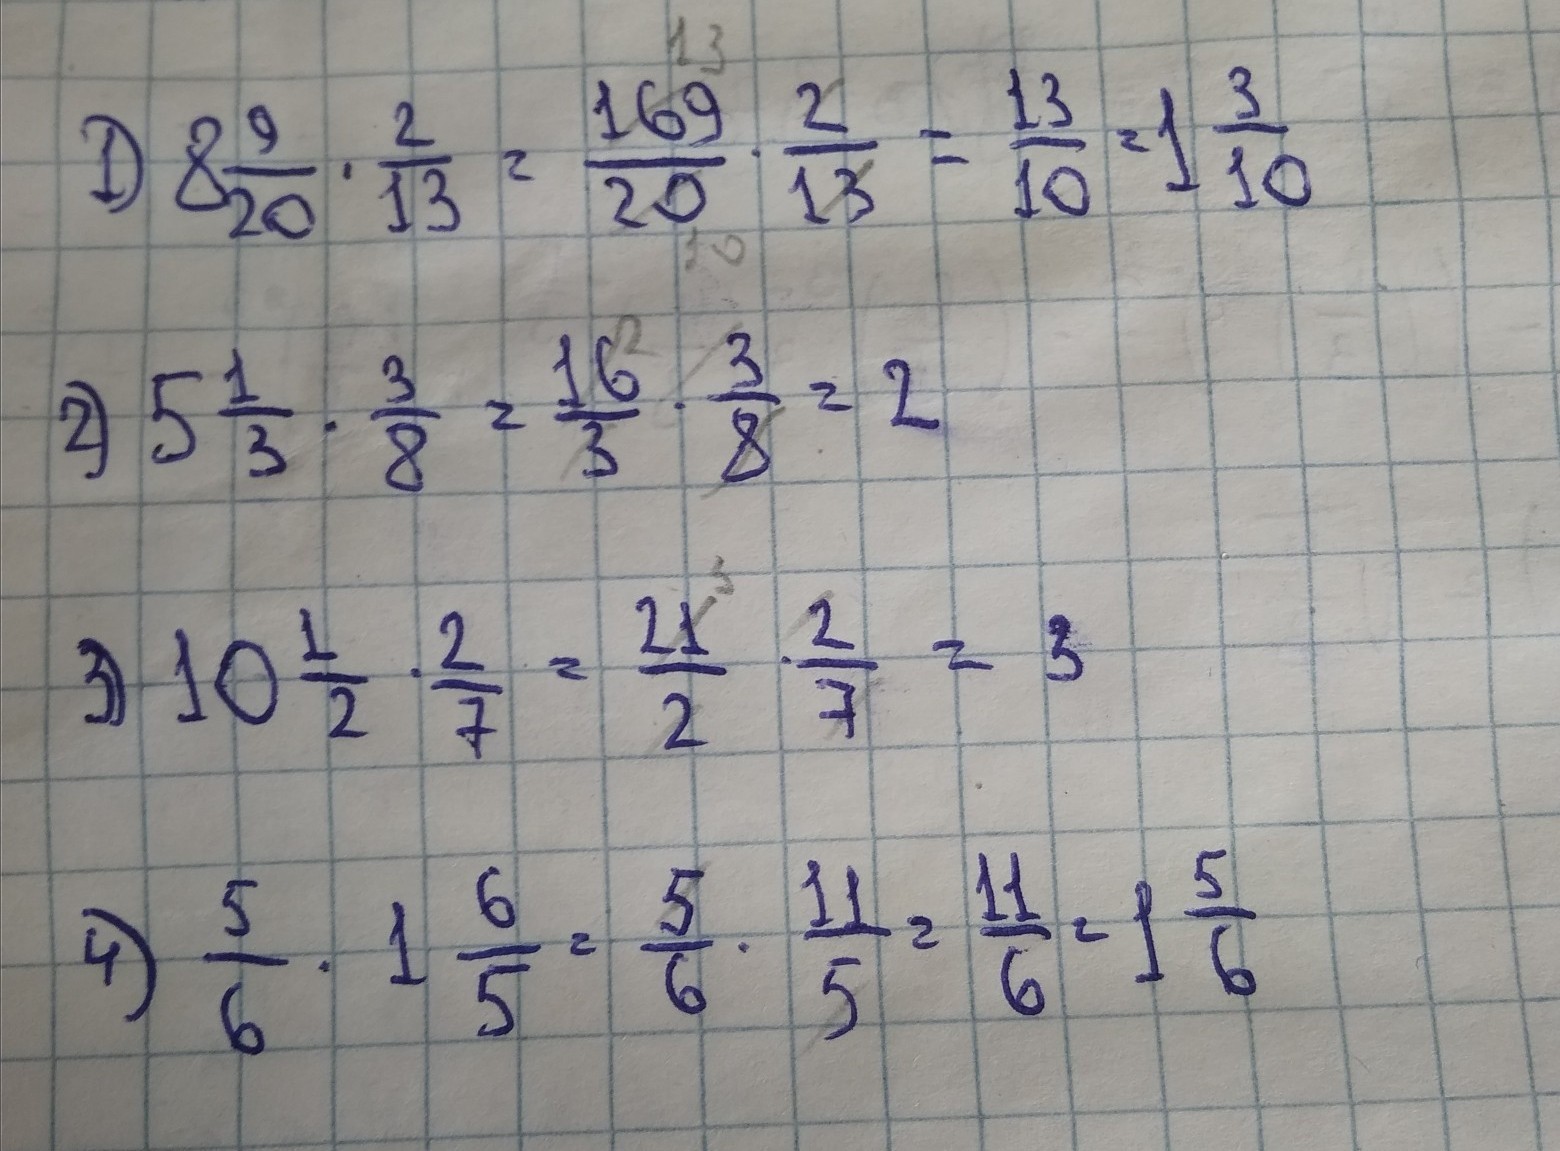 1) 8 9/20 · 2/13 = 169/20 · 2/13 = 13/10 = 1 3/10
13
10
2) 5 1/3 · 3/8 = 16/3 · 3/8 = 2
2
3) 10 1/2 · 2/7 = 21/2 · 2/7 = 3
3
4) 5/6 · 1 6/5 = 5/6 · 11/5 = 11/6 = 1 5/6